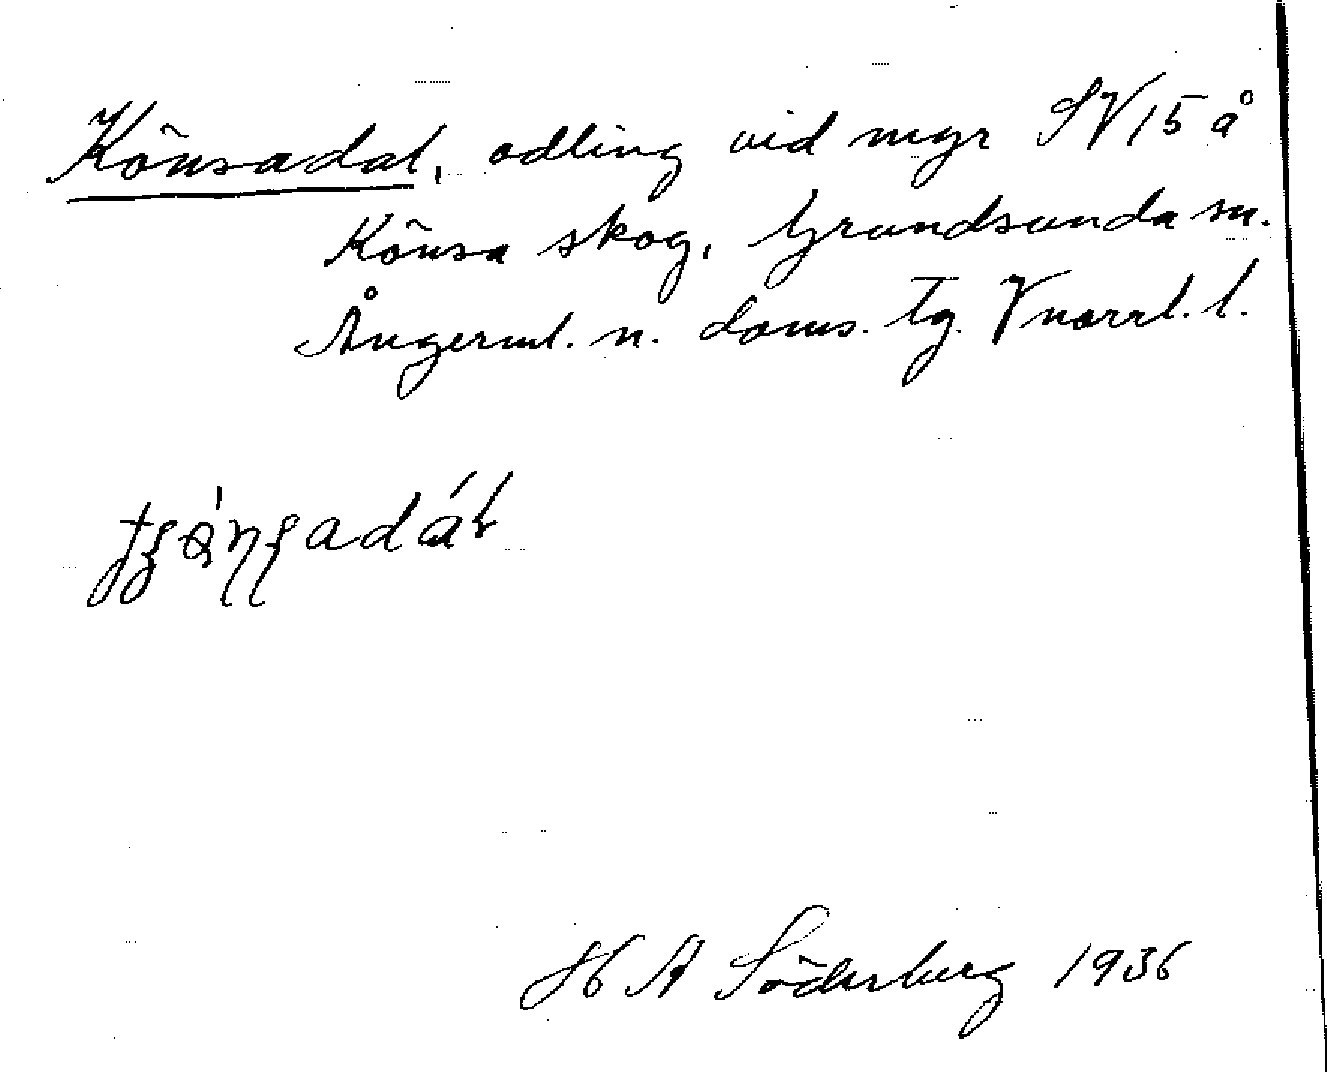 Könsadal, odling vid myr SV15 å
Könsa skog, Grundsunda sn.
Ångerml. n. doms. tg. Vnorrl. l.
H A Söderberg 1936